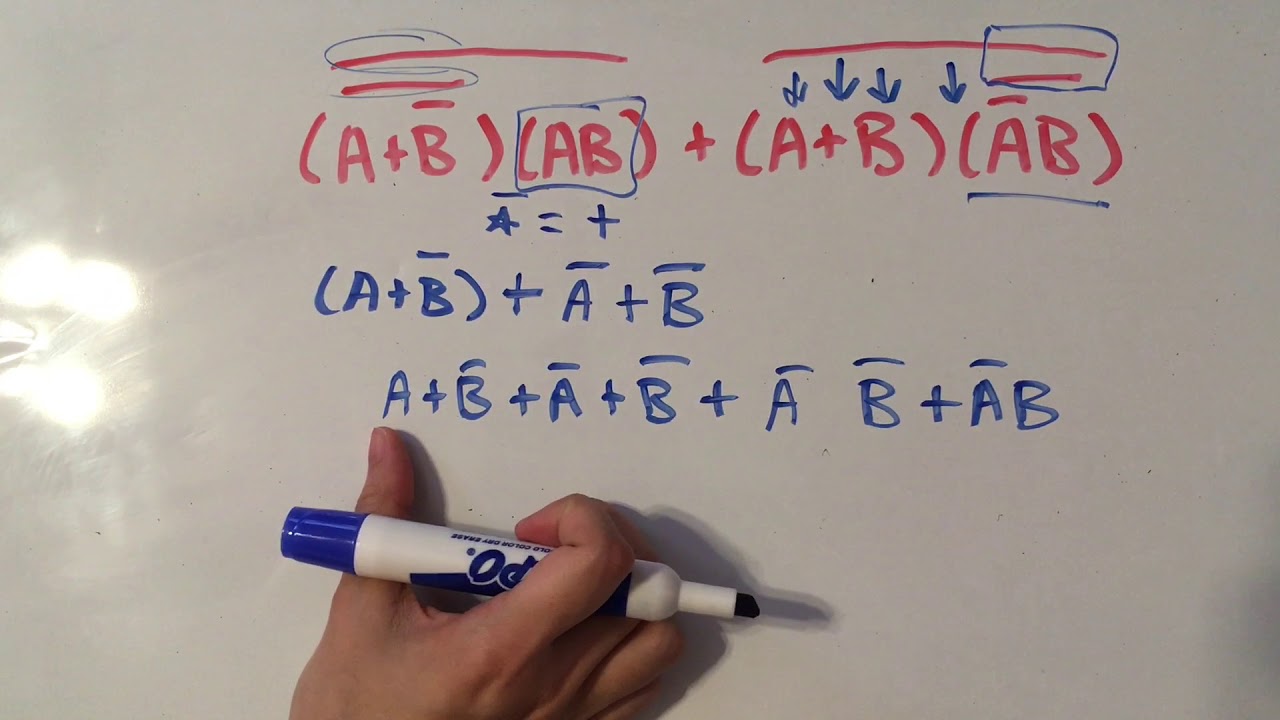 (A+B̅)(AB) + (A+B)(A̅B)
⊼ = +
(A+B̅)+A̅+B̅
A+B̅+A̅+B̅+A̅ B̅+A̅B
OLD COLOR DRY ERASE
PO®